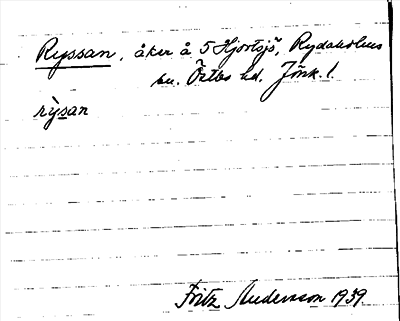 Ryssan, åker å 5 Hjortsjö, Rydaholms
sn. Östbo hd. Jönk. l.
rỳsan
Fritz Andersson 1939